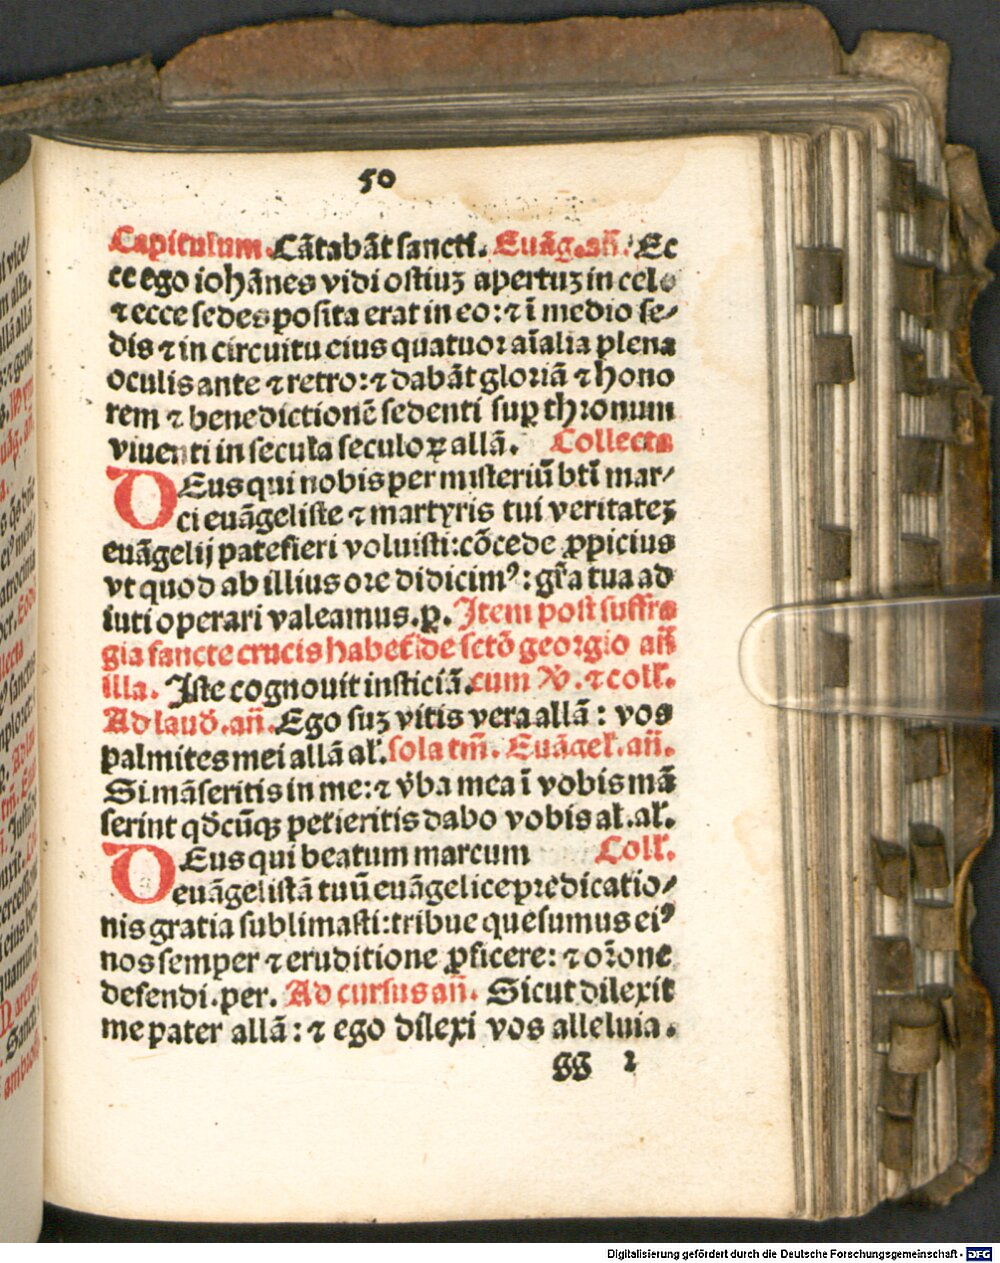 50
Capitulum. Cãtabãt sancti. Euãg.añ. Ec
ce ego iohãnes vidi ostiuȝ apertuȝ in celo
⁊ ecce sedes posita erat in eo: ⁊ ĩ medio se⸗
dis ⁊ in circuitu eius quatuor aĩalia plena
oculis ante ⁊ retro: ⁊ dabãt gloriã ⁊ hono
rem ⁊ benedictionẽ sedenti suꝑ thronum
viuenti in secula seculoꝝ allã. Collecta
DEus qui nobis per misteriũ btĩ mar⸗
ci euãgeliste ⁊ martyris tui veritateȝ
euãgelij patefieri voluisti: cõcede ꝓpicius
vt quod ab illius ore didicimꝰ: gr̃a tua ad
iuti operari valeamus. ꝑ. Item post suffra
gia sancte crucis habet᷑ de sctõ georgio añ
illa. Iste cognouit iusticiã. cum V̉. ⁊ coll̃.
Ad laud̃. añ. Ego suȝ vitis vera allã: vos
palmites mei allã al̃. sola tm̃. Euãgel̃. añ.
Si mãseritis in me: ⁊ v̉ba mea ĩ vobis mã
serint qd̃cũqꝫ petieritis dabo vobis al̃. al̃.
DEus qui beatum marcum Coll̃.
euãgelistã tuũ euãgelice predicatio⸗
nis gratia sublimasti: tribue quesumus eiꝰ
nos semper ⁊ eruditione ꝓficere: ⁊ or̃one
defendi. per. Ad cursus añ. Sicut dilexit
me pater allã: ⁊ ego dilexi vos alleluia.
gg 1
Digitalisierung gefördert durch die Deutsche Forschungsgemeinschaft - DFG